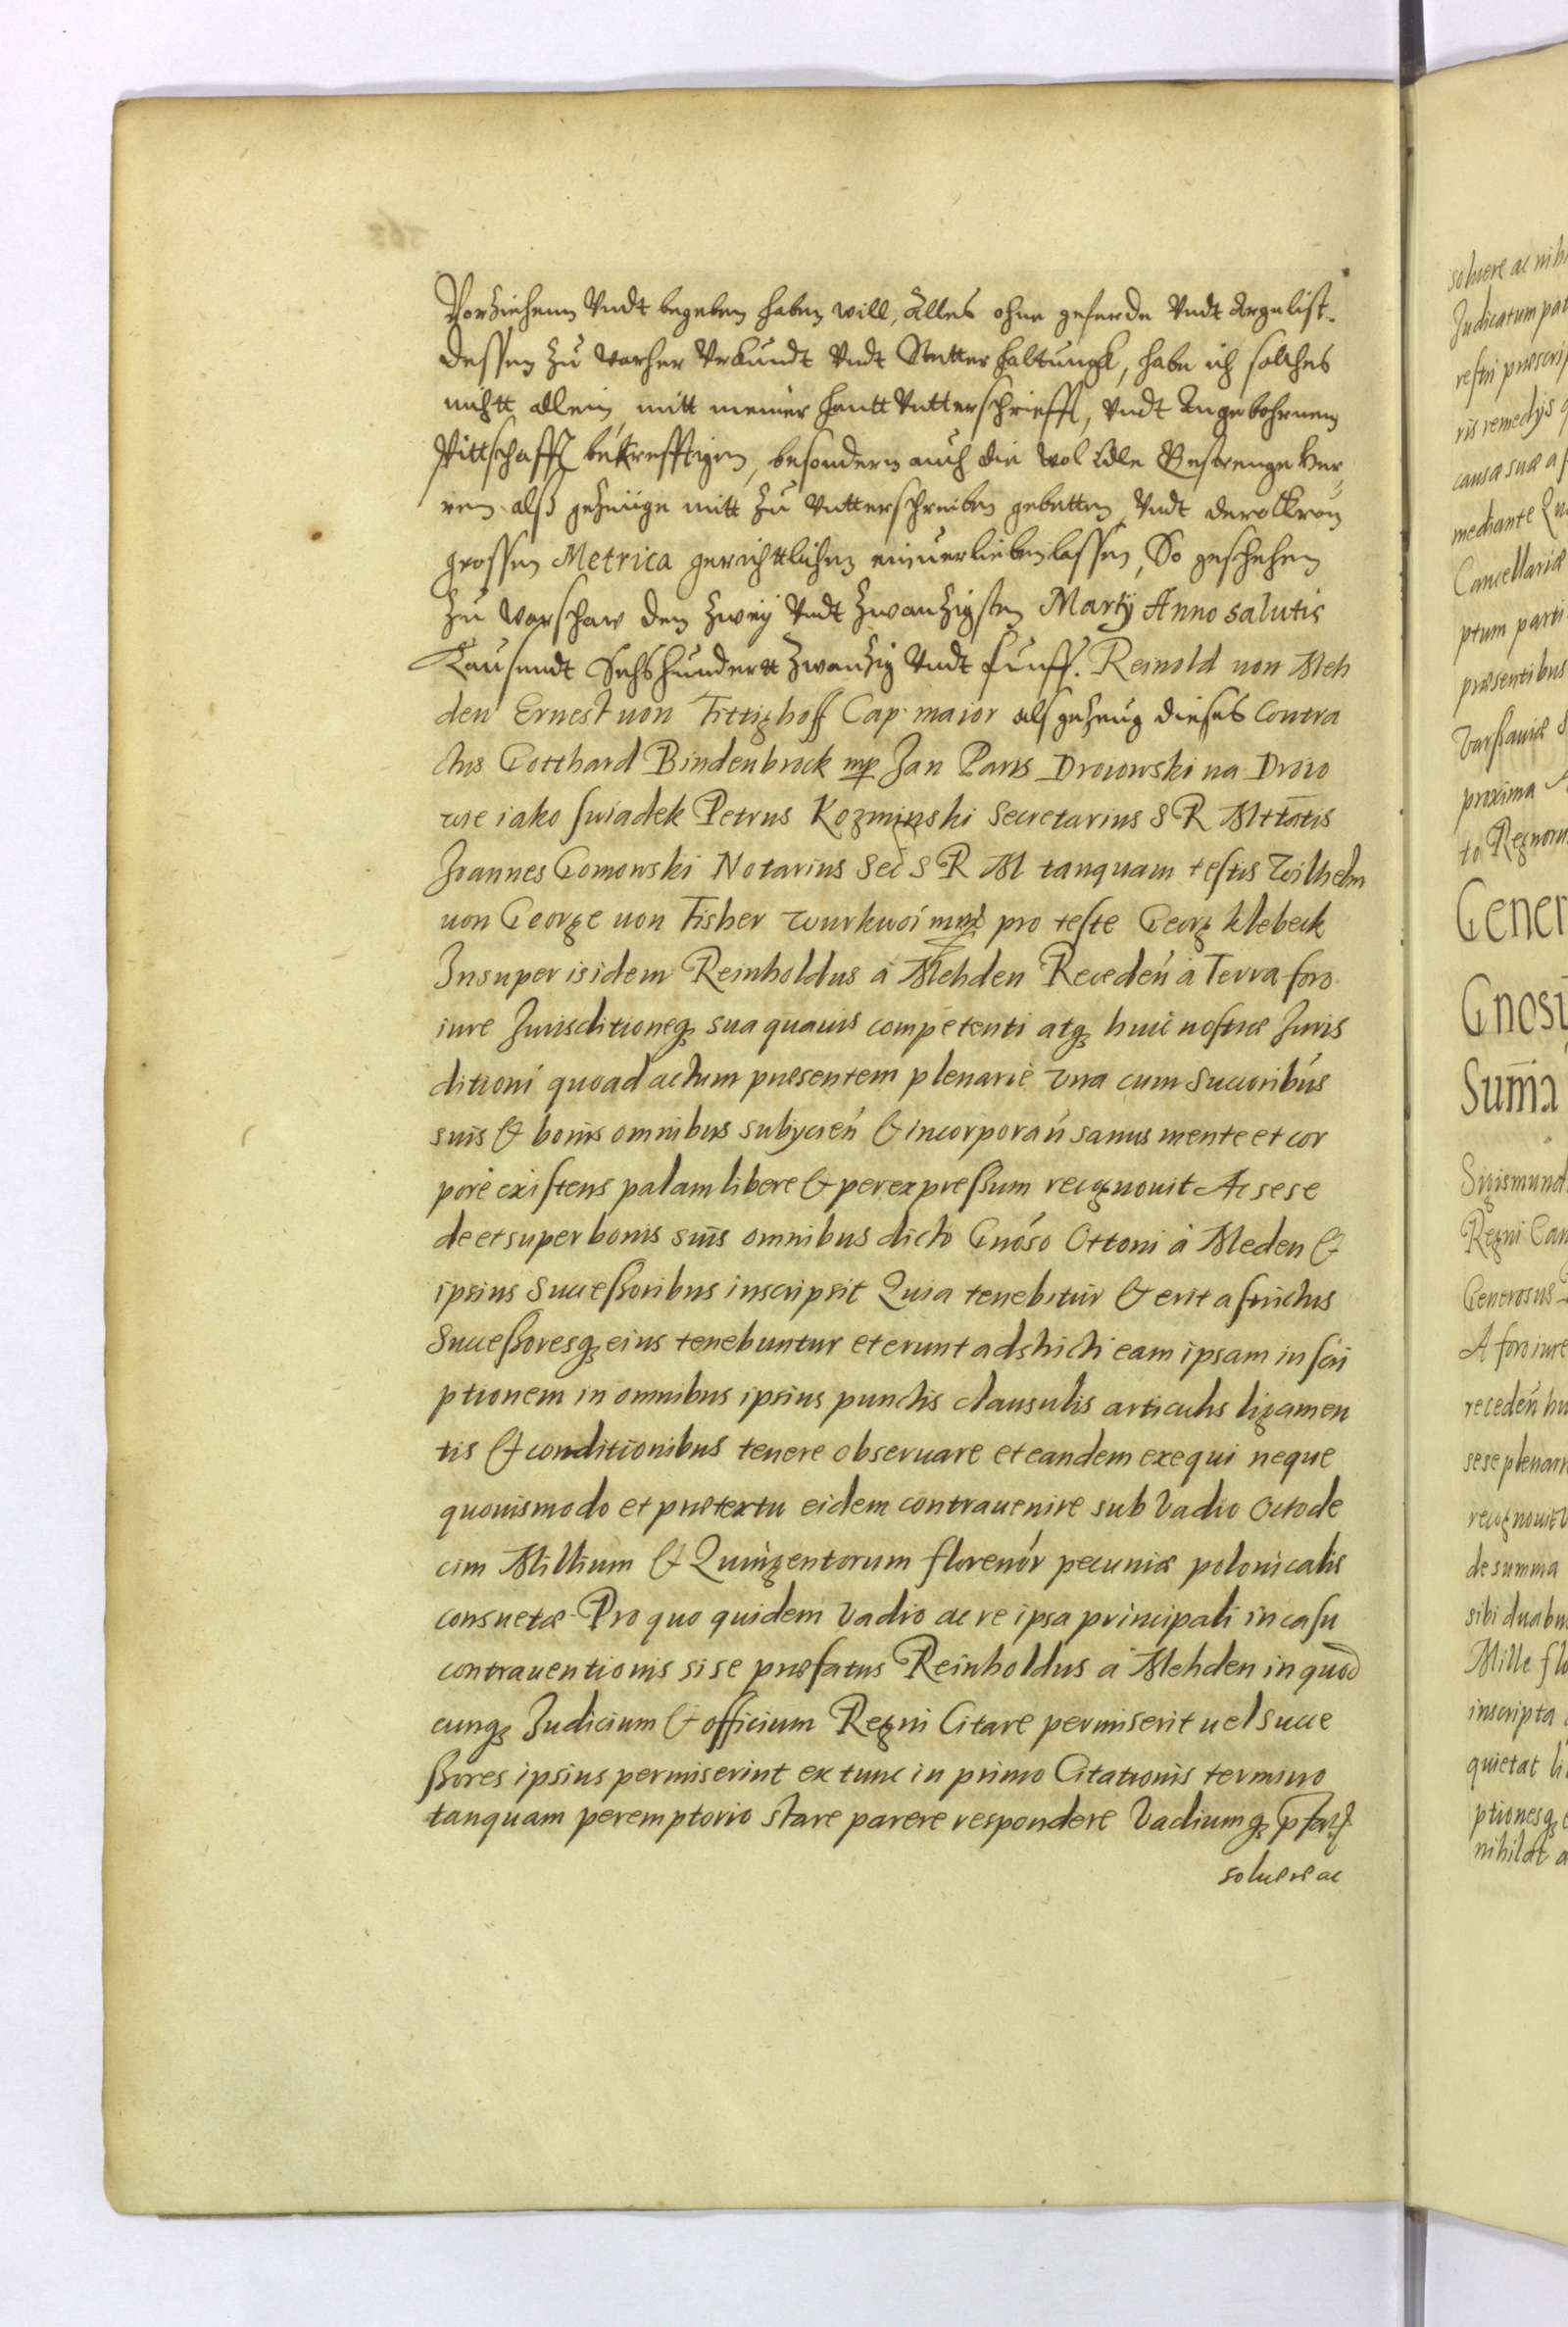 Vorziehenn Vndt begeben haben will, Alles ohne geferde Vndt Argelist.
Dessen zu warher Vrkundt Vndt haltungk, habe ich solches
nichtt allein mitt meiner hantt Vntterschriefft, Vndt Angebohrnem
Pittschafft bekrefftigen, besondern auch die Wol Edle Gestrenge Her
ren alß gezeuge mitt zu Vntterschreiben gebetten Vndt
grossen Metrica gerichttlichen einuerlieben lassen, So geschehen
Zu Warschaw den zwey Vndt zwanzigsten Martÿ Anno salutis
Tausendt Sechshundertt zwanzig Vndt funff. Reinold uon Meh
den Ernest uon Tittighoff Cap. maior als gezeug dieses Contra
ctus Gotthard Bindenbrock mp Jan Parıs Droiowski na Droio
wie iako swiadek Petrus Kozminski Secretarius S R Mttatis
Joannes Gomowski Notarius Sec S R M tanquam testis Wilhelm
uon George uon Fisher wurkwoi mp pro teste Georg klebeck
Insuper is idem Reinholdus à Mehden Receden à Terra foro
iure Jurisditioneq sua quauis competenti atq huic nostræ Juris
ditioni quoad actum præsentem plenarie Vna cum Succoribus
suis & bonis omnibus subÿcien & incorporan sanus mente et cor
pore existens palam libere & per expressum recognouit Ac sese
de et super bonis suis omnibus dicto Gnoso Ottoni à Meden &
ipsius Successoribus inscripsit Quia tenebitur & erit astrictus
Successoresq eius tenebuntur et erunt adstricti eam ipsam inscri
ptionem in omnibus ipsius punctis clausulis articulis ligamen
tis & conditionibus tenere obseruare et eandem exequi neque
quouismodo et prætextu eidem contrauenire sub Vadio Octode
cim Millium & Quingentorum florenor pecuniæ polonicalis
consuetæ Pro quo quidem Vadio ac re ipsa principali in casu
contrauentionis si se præfatus Reinholdus à Mehden in quod
cunq Judicium & officium Regni Citare permiserit uel Succe
ssores ipsius permiserint ex tunc in primo Citationis termino
tanquam peremptorio stare parere respondere Vadiumq
soluere ac
soluere ac nihi
Judicatum
ris remedÿs
causa sua a
mediante
Cancellariæ
ptum parti
præsentibus
Varsauiæ
proxima
to Regnoru
Gener
Gnosi
Suma
Sigismund
Regni Can
Generosus
A foro iure
receden hu
sese plenari
recognouit
de summa
sibi duabus
Mille flo
inscripta
quietat li
ptionesq
nihilat a